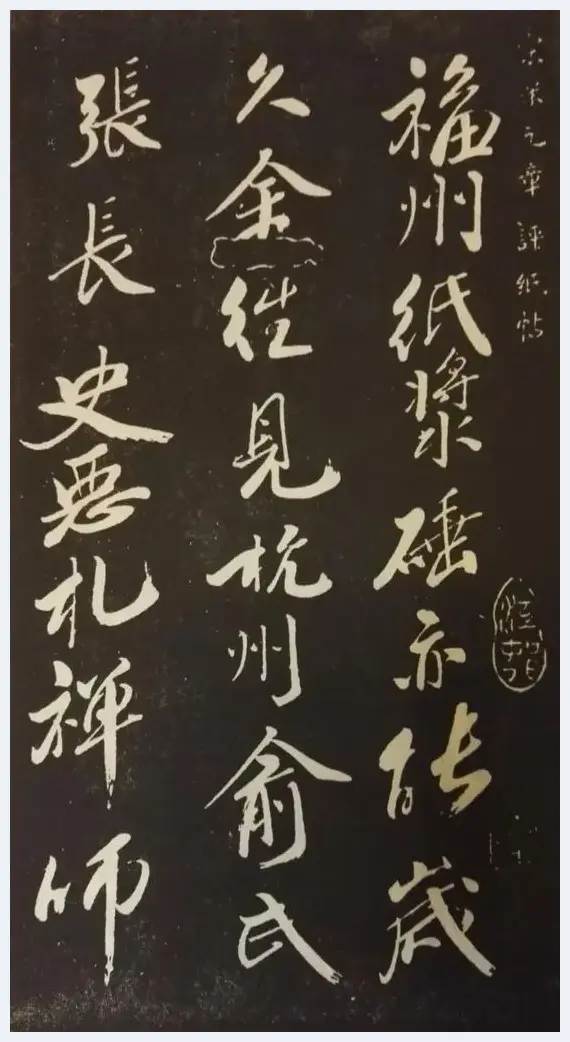 宋米元章評紙帖
福州紙漿硾亦能歲
久余往見杭州俞氏
張長史惡札禅師